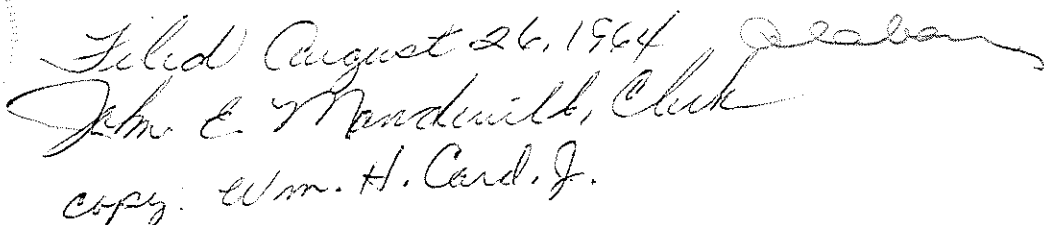 Filed August 26, 1964
John E. Mandeville, Clerk
copy: Wm. H. Card. J.